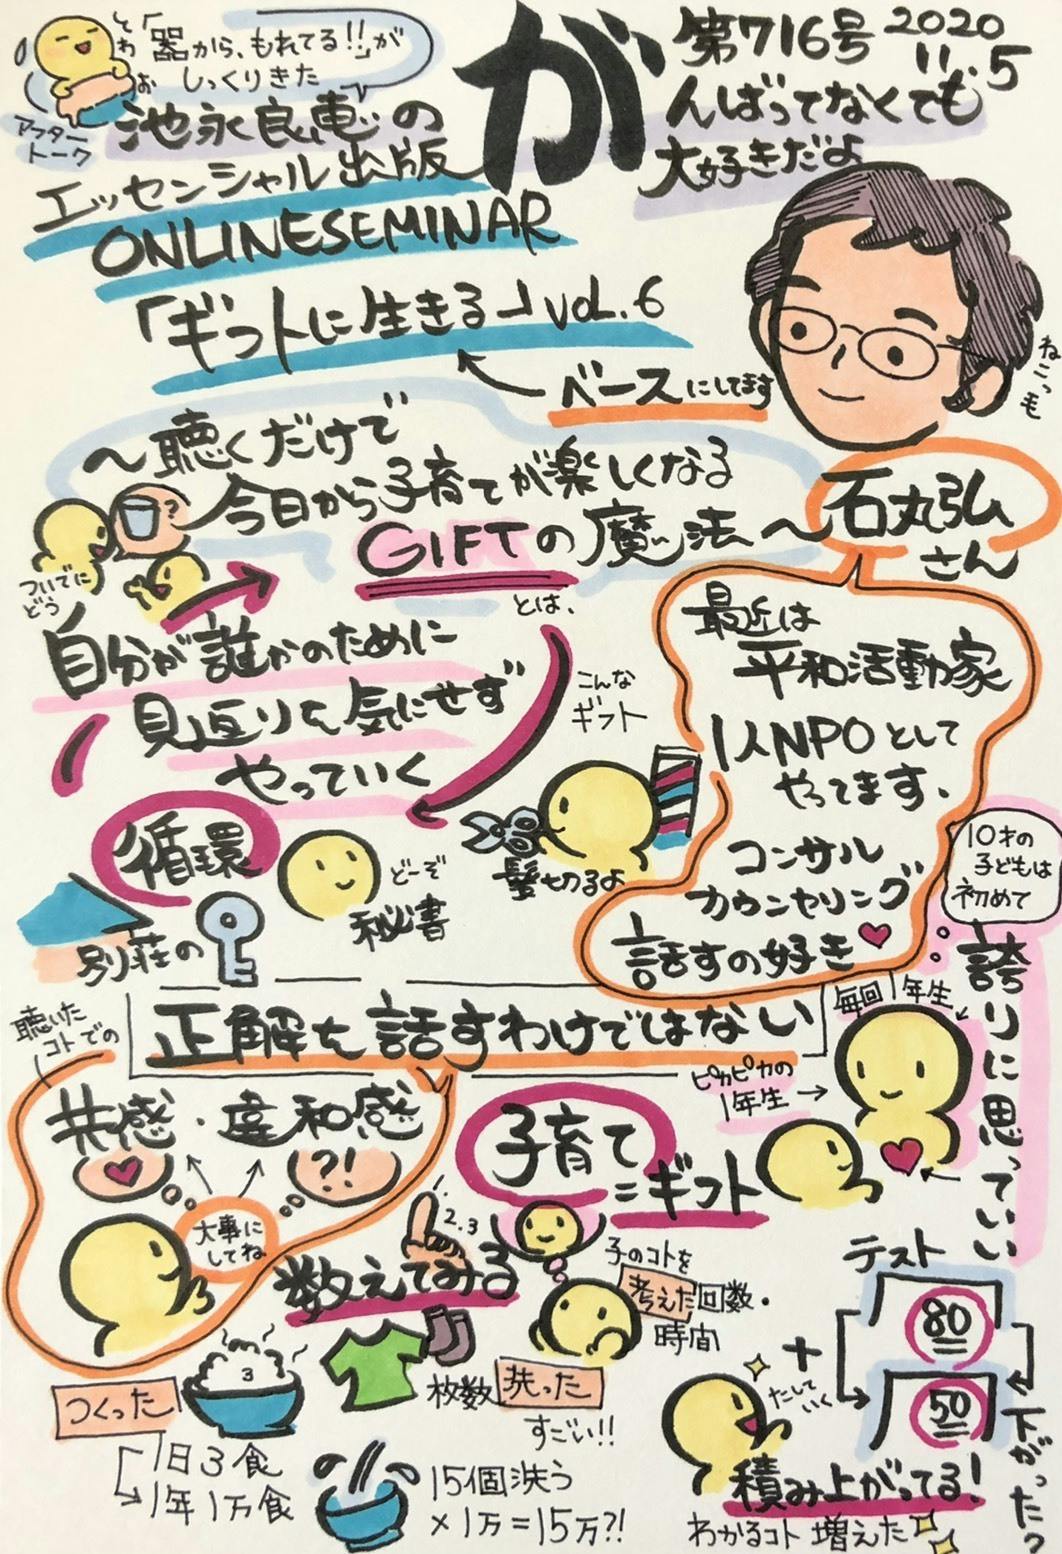 とわぉ
「器から、もれてる!!」が
しっくりきた
アフター
トーク
が
第716号 2020
11.5
んばってなくても
大好きだよ
池永良恵の
エッセンシャル出版
ONLINESEMINAR
「ギフトに生きる」VOL.6
ベースにしてます
ねこっ毛
〜聴くだけで
今日から子育てが楽しくなる
GIFTの魔法〜
石丸弘
さん
ついでに
どう
?
とは、
自分が誰かのために
見返りを気にせず
やっていく
こんな
ギフト
最近は
平和活動家
1人NPOとして
やってます、
コンサル
カウンセリング
話すの好き
循環
どーぞ
秘書
髪切るよ
別荘の
10才の
子どもは
初めて
誇りに思っていい
正解を話すわけではない
聴いた
コトでの
共感・違和感
?!
大事に
してね
毎回1年生
ピカピカの
1年生→
子育て
=ギフト
1.2.3
数えてみる
子のコトを
考えた回数・
時間
テスト
80
50
+
たして
いく
下がった?
積み上がってる!
わかるコト増えた
つくった
3
1日3食
1年1万食
枚数洗った
すごい!!
15個洗う
×1万=15万?!